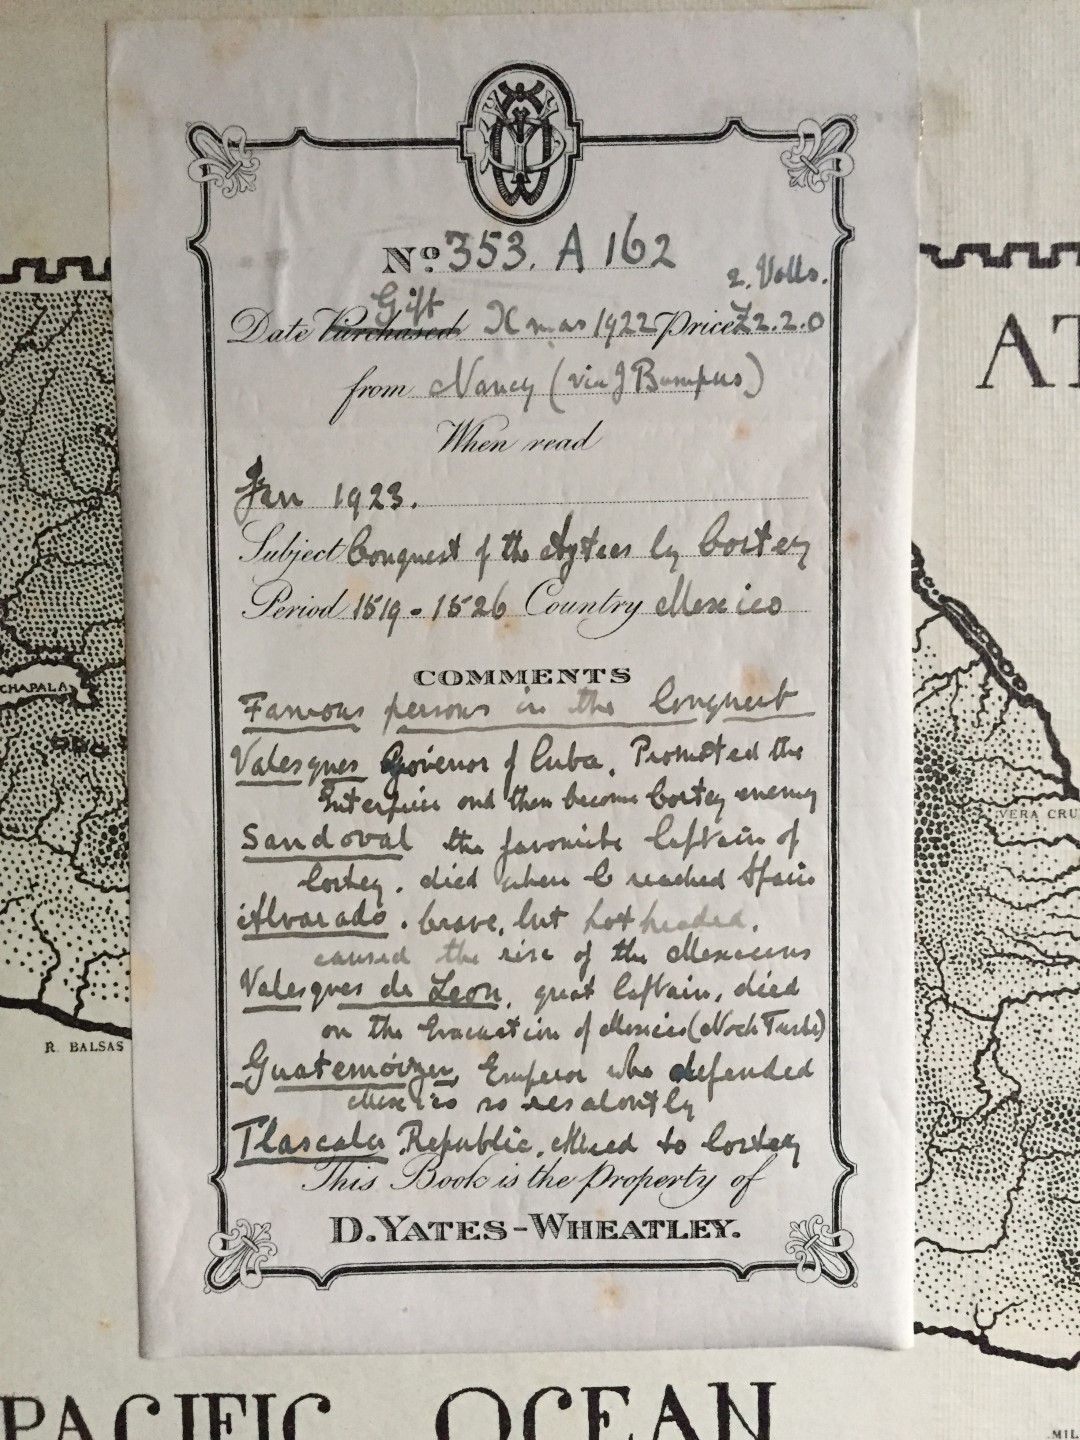 No. 353. A 162
2. Volls.
Gift
Date Purchased Xmas 1922 Price £2.2.0
from Nancy (via J Bumpus)
When read
Jan 1923.
Subject Conquest of the Aztecs by Cortez
Period 1519 - 1526 Country Mexico
COMMENTS
Famous persons in the Conquest
Valesques Governor of Cuba. Promoted the
Enterprise and then became Cortez enemy
Sandoval the favourite Captain of
Cortez. died when C reached Spain
Alvarado. brave, but hot headed.
caused the rise of the Mexicans
Valesques de Leon, great Captain, died
on the Evacuation of Mexico (Noch Triste)
Guatemozin, Emperor who defended
Mexico so resolutely
Tlascala Republic. Allied to Cortez
This Book is the Property of
D. YATES-WHEATLEY.
AT
CHAPALA
VERA CRU
R. BALSAS
PACIFIC OCEAN
MIL